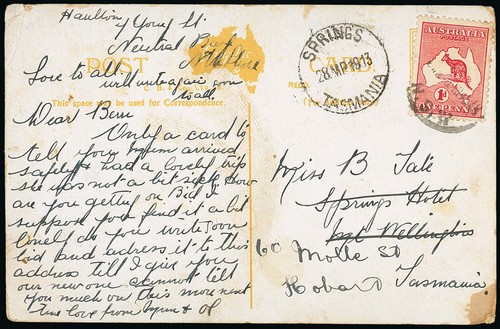 Haulton
7 Young St.
Neutral Bay
Love to all
will write again soon
to all
POST
This space may be used for Correspondence.
Dear Bern
Only a card to
tell you Mum arrived
safely & had a lovely trip
she was not a bit sick. How
are you getting on
suppose you find it a bit
lonely do you write soon
and adress it to this
address till I give you
our new one cannot tell
you much on this more next
love from Mum &
SPRINGS
28 MR 1913
TASMANIA
AUSTRALIA
POSTAGE
1D
ONE PENNY
Miss B Tate
Springs Hotel
Mt Wellington
60 Molle St
Hobart Tasmania